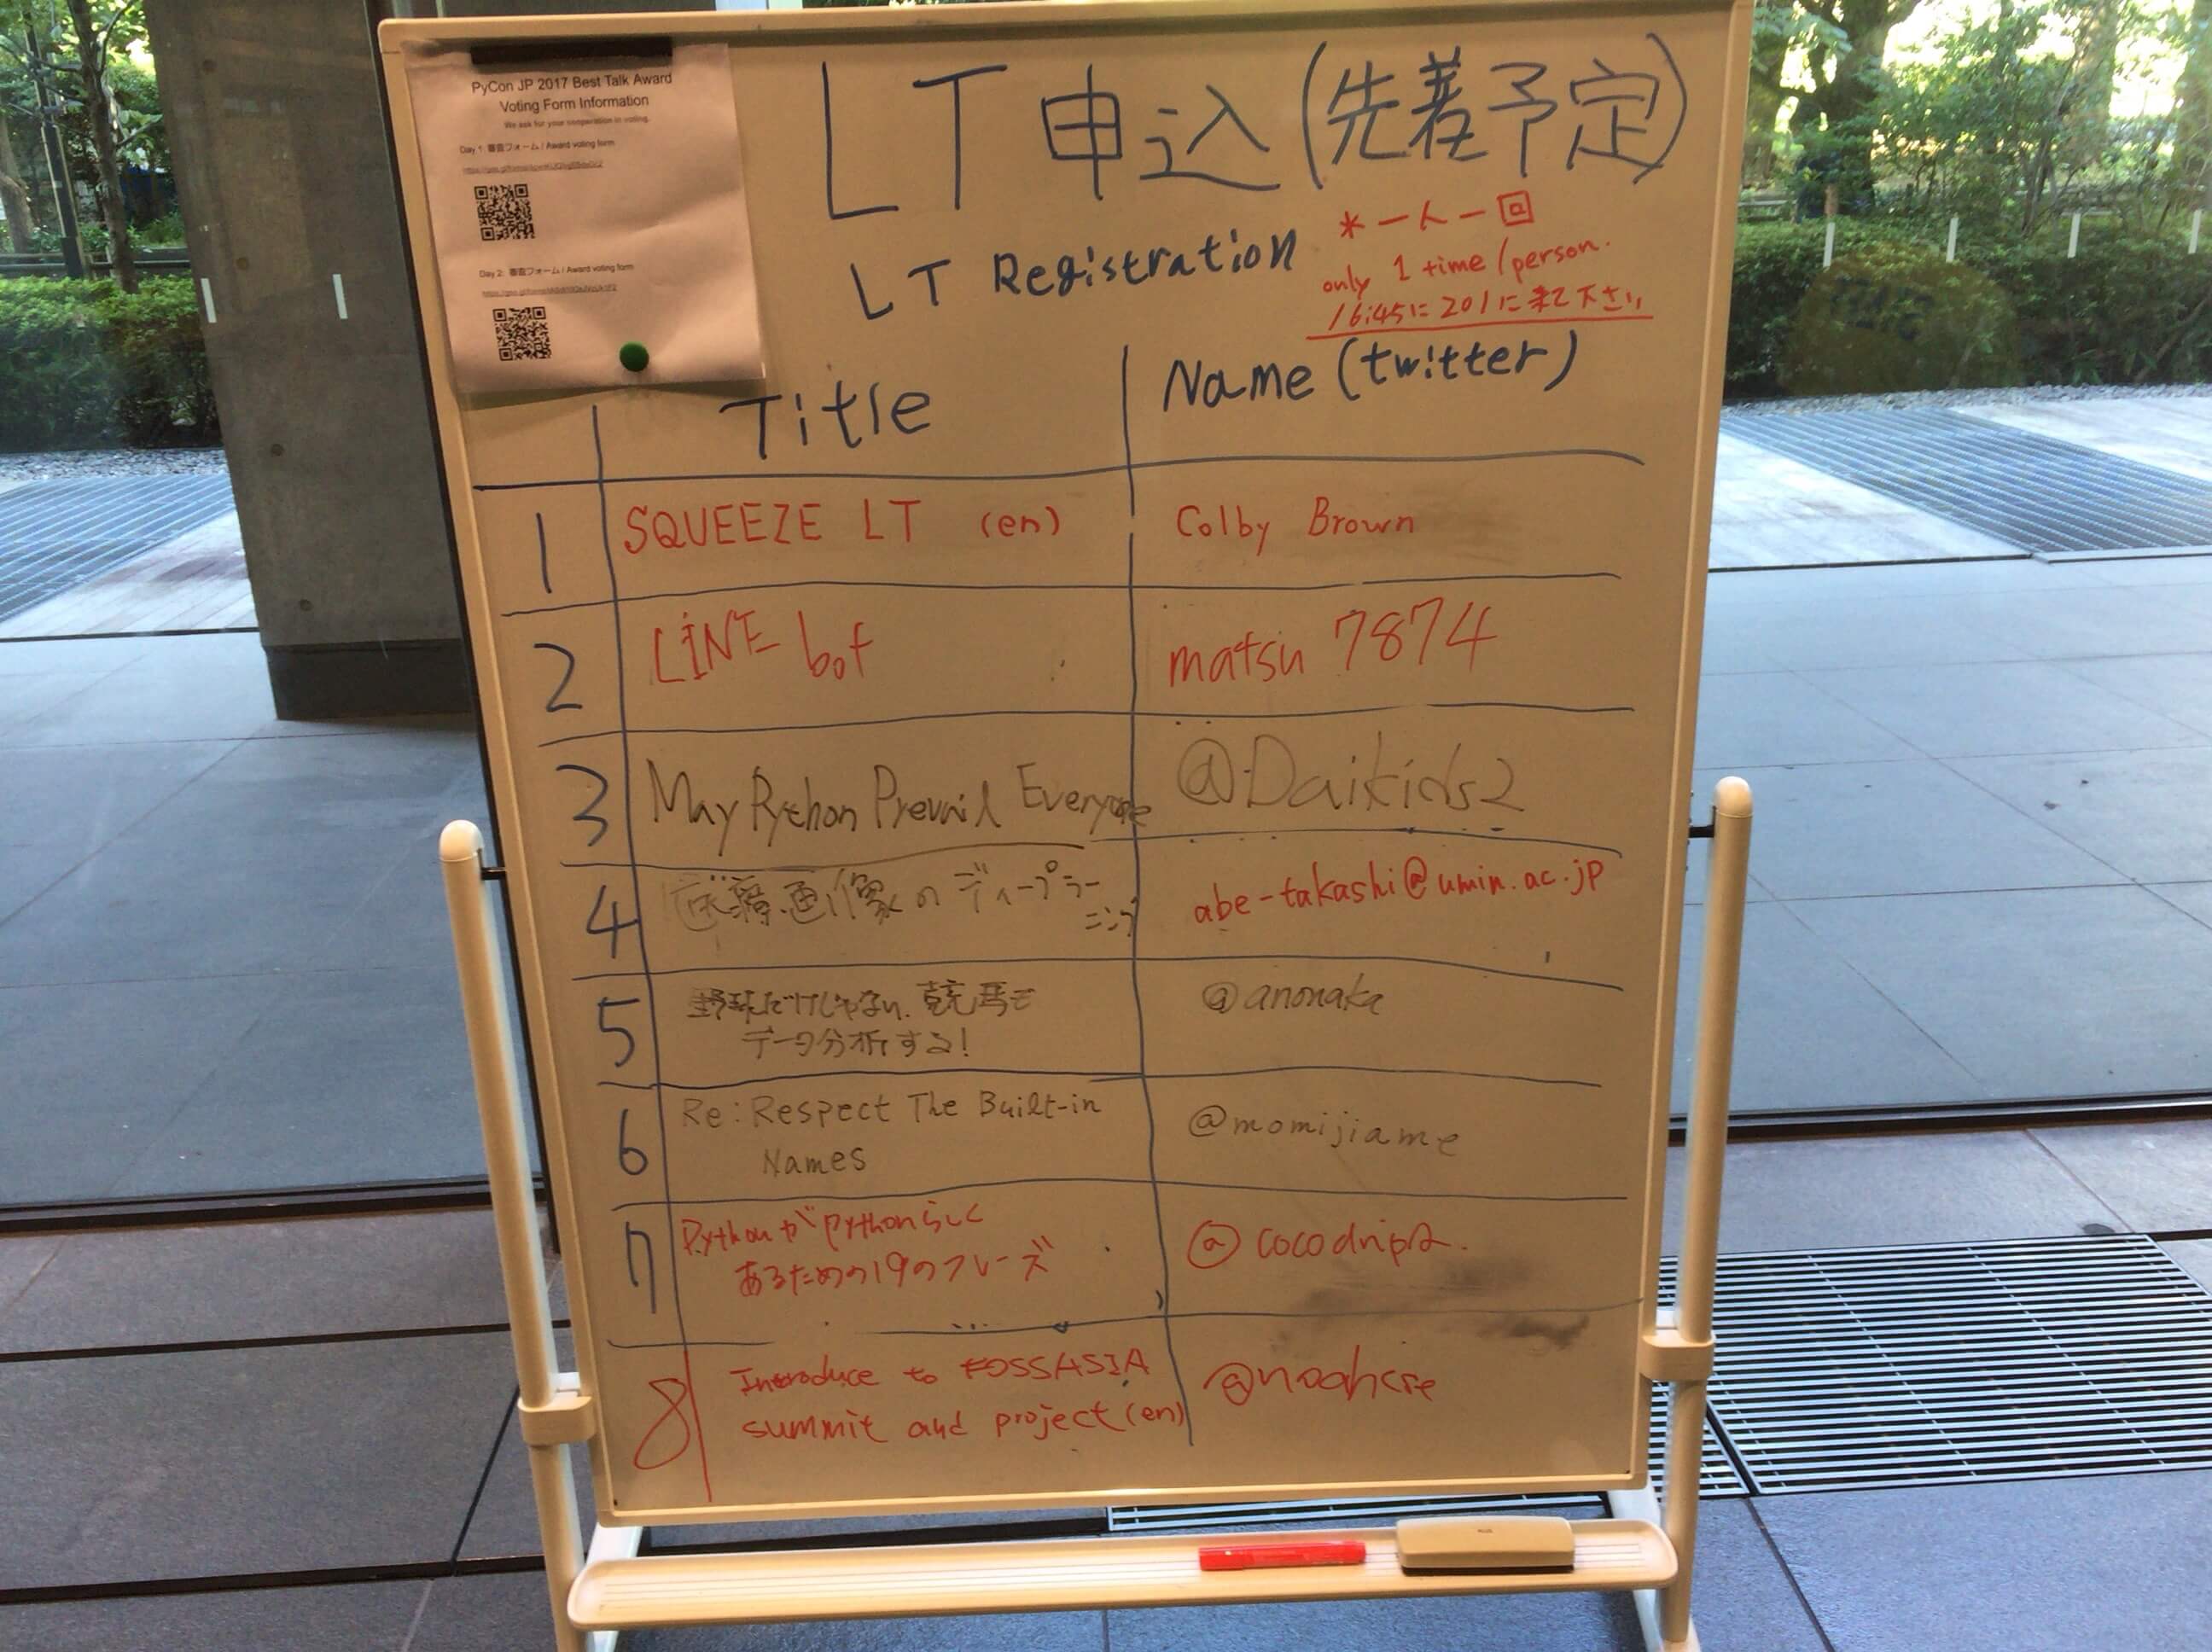 PyCon JP 2017 Best Talk Award
Voting Form Information
We ask for your cooperation in voting.
Day 1: 審査フォーム / Award voting form
Day 2: 審査フォーム / Award voting form
LT 申込 (先着予定)
LT Registration
* 一人一回
only 1 time/person.
16:45に201に来て下さい
Title
Name (twitter)
1
SQUEEZE LT (en)
Colby Brown
2
LINE bot
matsu 7874
3
May Python Prevail Everyone
@Daikids2
4
医療画像のディープラー
ニング
abe-takashi@umin.ac.jp
5
野球だけじゃない、競馬も
データ分析する!
@anonaka
6
Re: Respect The Built-in
Names
@momijiame
7
Pythonがpythonらしく
あるための19のフレーズ
8
Introduce to FOSSASIA
summit and project (en)